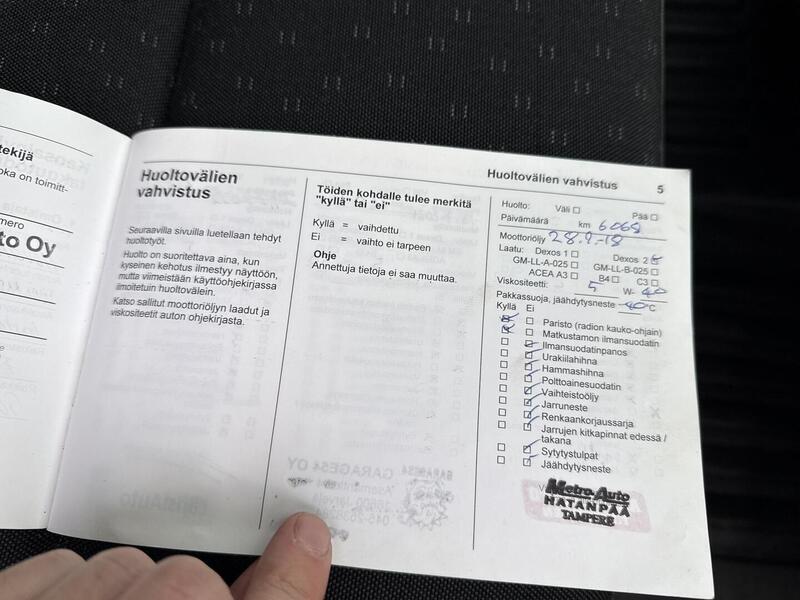 tekijä
oka on toimitt-
mero
to Oy
Huoltovälien
vahvistus
Seuraavilla sivuilla luetellaan tehdyt
huoltotyöt.
Huolto on suoritettava aina, kun
kyseinen kehotus ilmestyy näyttöön,
mutta viimeistään käyttöohjekirjassa
ilmoitetuin huoltovälein.
Katso sallitut moottoriöljyn laadut ja
viskositeetit auton ohjekirjasta.
Töiden kohdalle tulee merkitä
"kyllä" tai "ei"
Kyllä = vaihdettu
Ei = vaihto ei tarpeen
Ohje
Annettuja tietoja ei saa muuttaa.
Huoltovälien vahvistus 5
Huolto: Väli Pää
Päivämäärä km 6068
Moottoriöljy 28.9.-18
Laatu: Dexos 1 Dexos 2
GM-LL-A-025 GM-LL-B-025
ACEA A3 B4 C3
Viskositeetti: 5 W- 40
Pakkassuoja, jäähdytysneste -40°C
Kyllä Ei
Paristo (radion kauko-ohjain)
Matkustamon ilmansuodatin
Ilmansuodatinpanos
Urakiilahihna
Hammashihna
Polttoainesuodatin
Vaihteistoöljy
Jarruneste
Renkaankorjaussarja
Jarrujen kitkapinnat edessä /
takana
Sytytystulpat
Jäähdytysneste
Metro Auto
HATANPÄÄ
TAMPERE